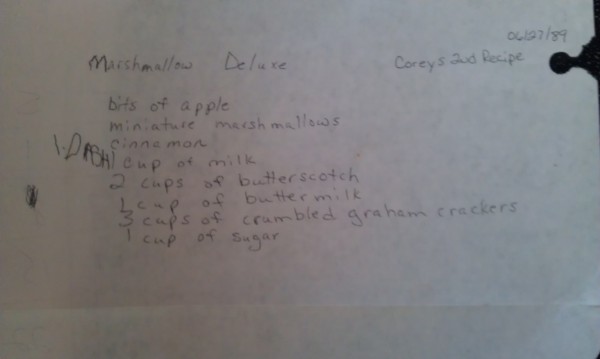 06/27/89
Marshmallow Deluxe Coreys 2nd Recipe
bits of apple
miniature marshmallows
1. DASH cinnamon
1 cup of milk
2 cups of butterscotch
1 cup of buttermilk
3 cups of crumbled graham crackers
1 cup of sugar